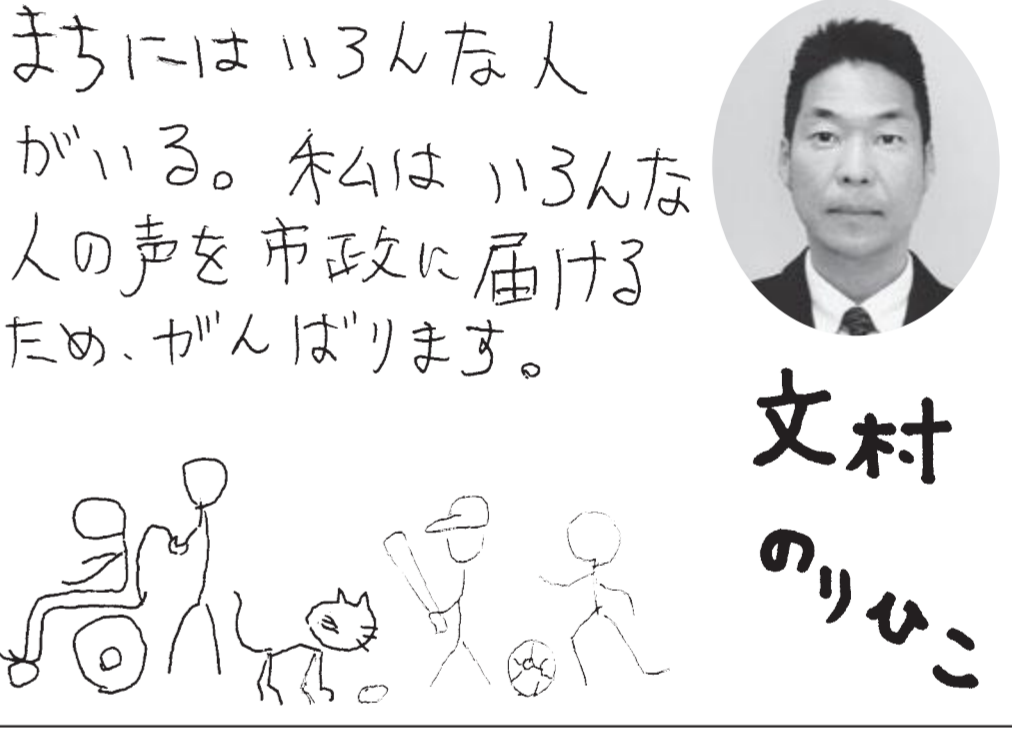 まちにはいろんな人
がいる。私はいろんな
人の声を市政に届ける
ため、がんばります。
文村
のりひこ